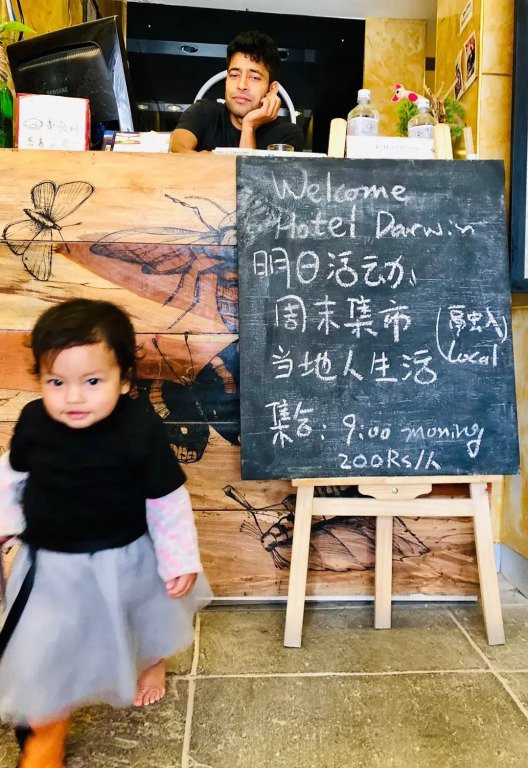 SAMSUNG
Welcome
Hotel Darwin
明日活动
周末集市
(融入
Local)
当地人生活
集合: 9:00 morning
200Rs/人